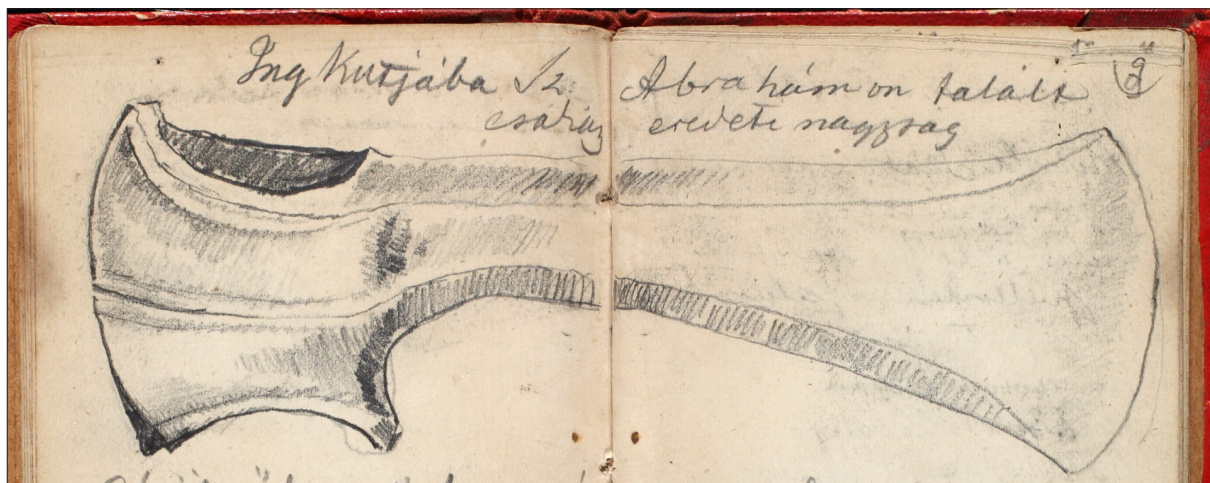 Ing Kutjába Sz. Abrahámon talált
csákány eredeti nagyság
2